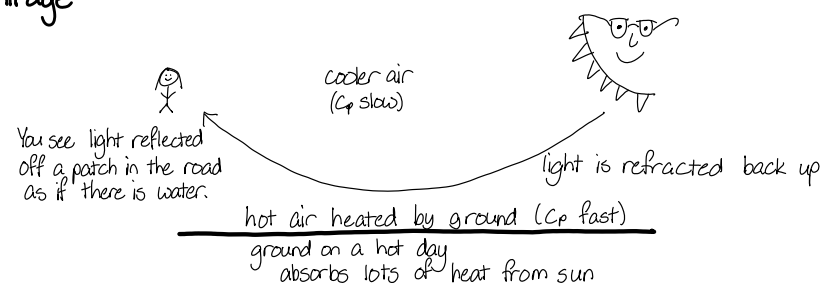 cooler air
(Cp slow)
You see light reflected
off a patch in the road
as if there is water.
light is refracted back up
hot air heated by ground (Cp fast)
ground on a hot day
absorbs lots of heat from sun